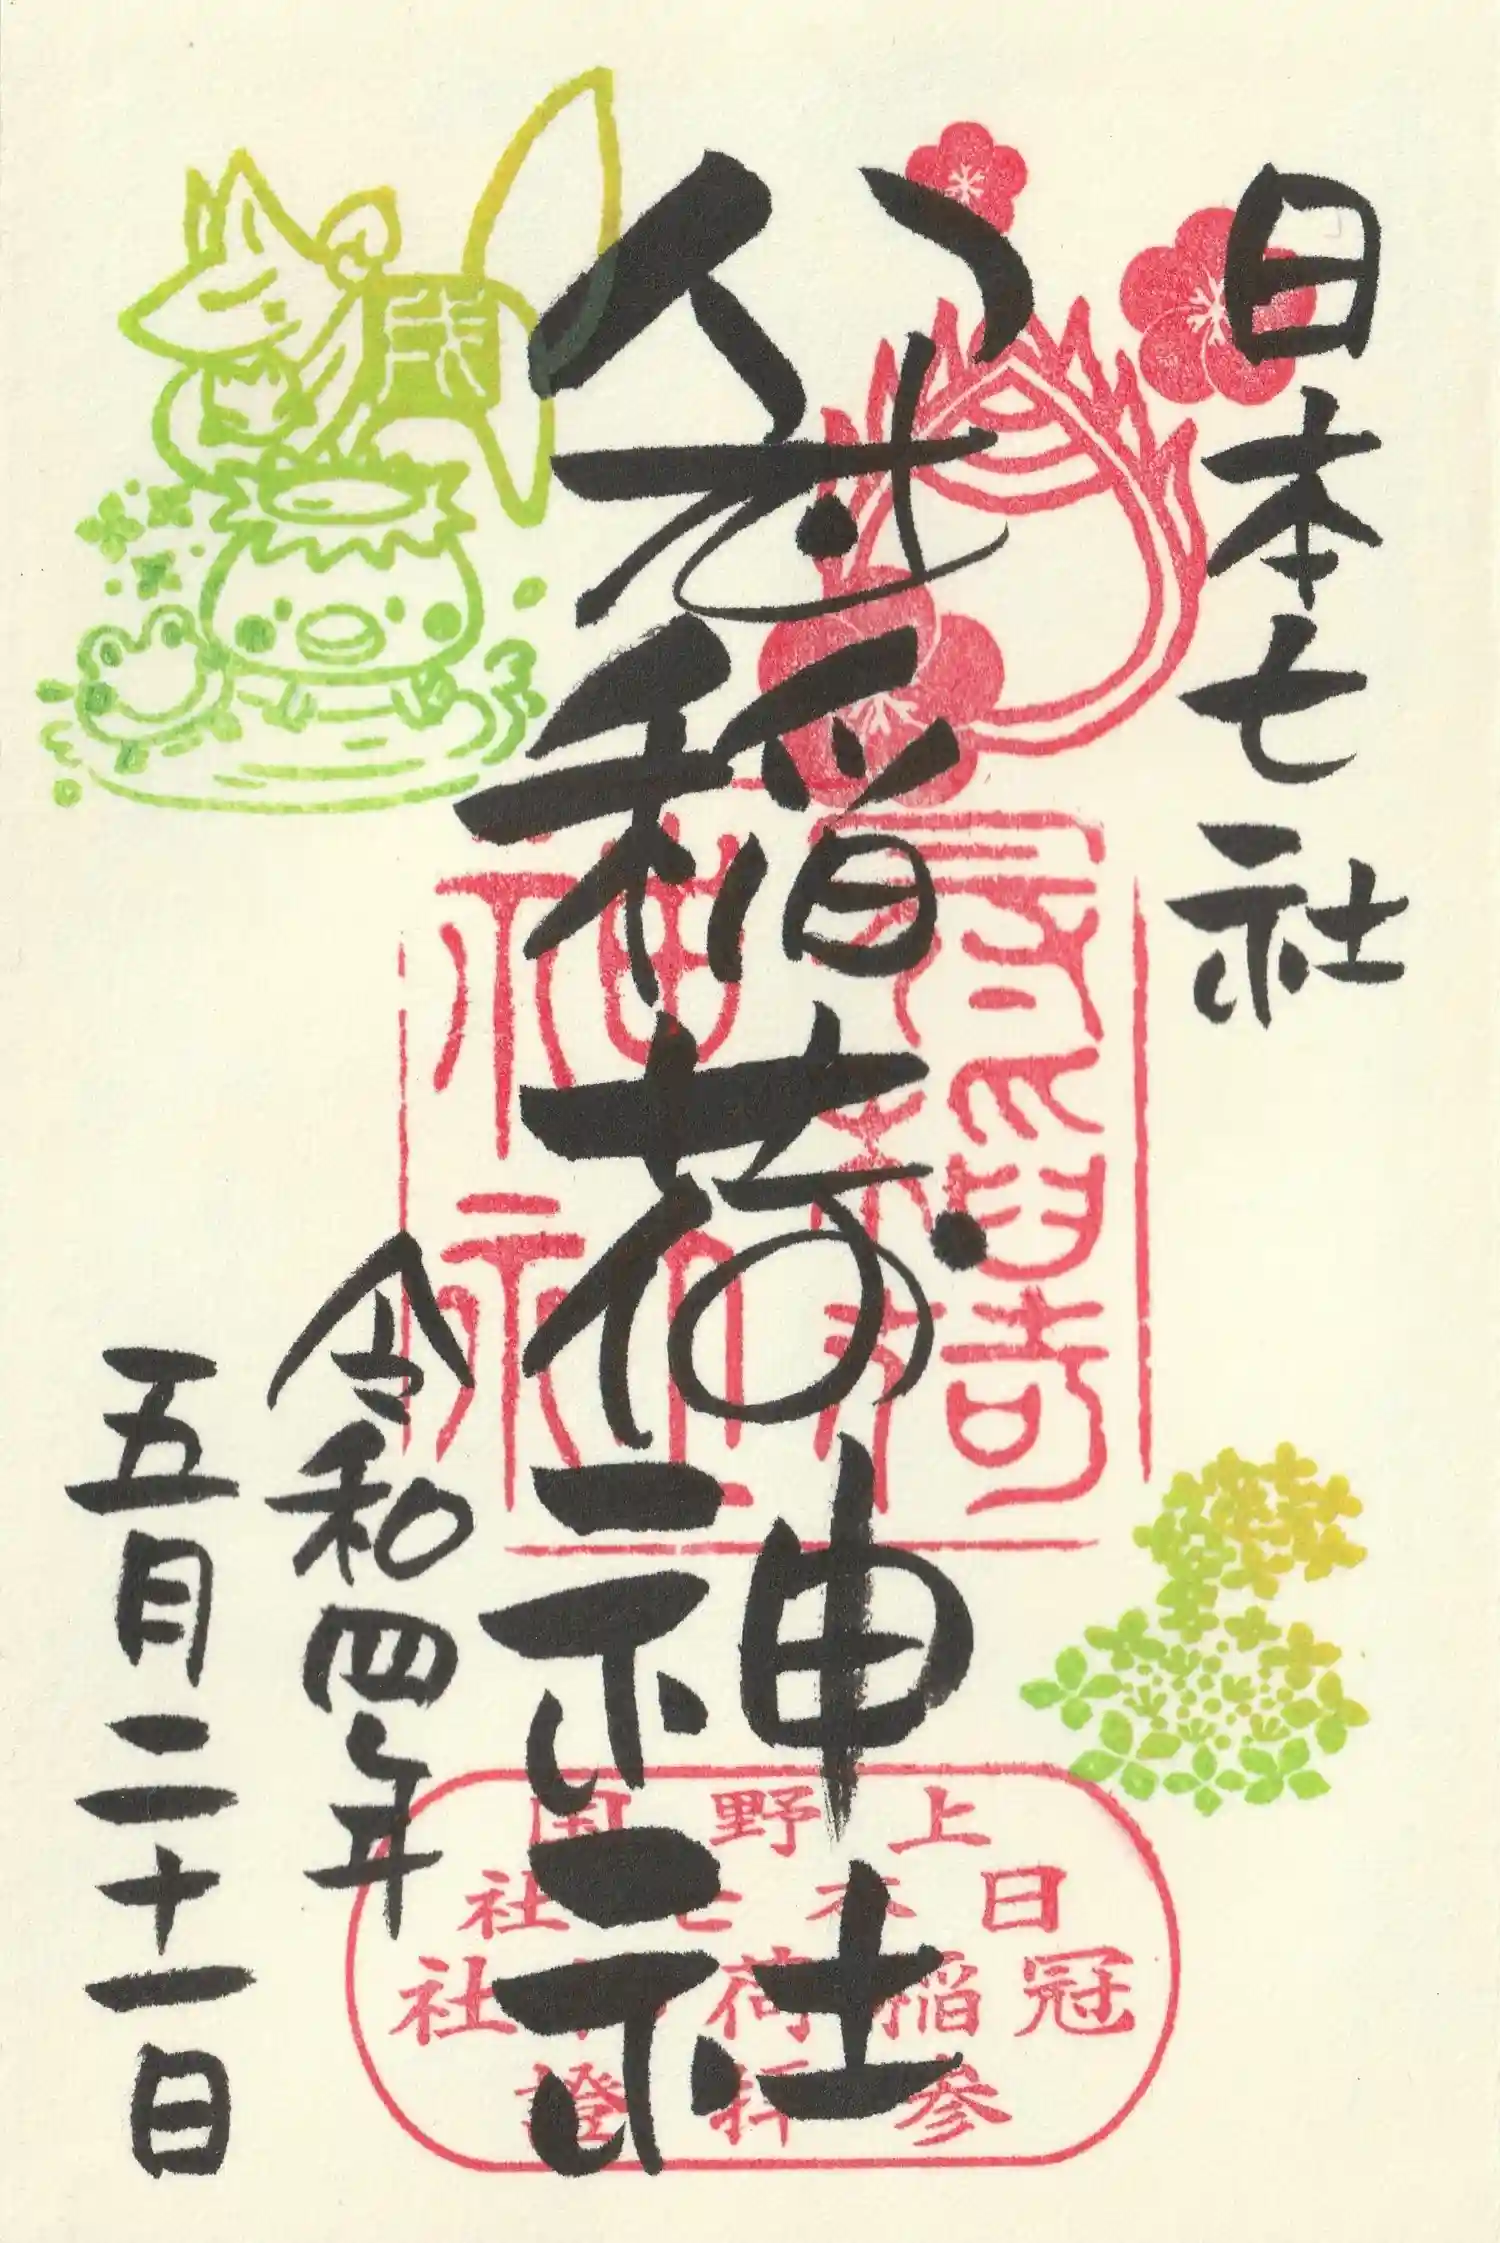 日本七社
冠稲荷神社
令和四年
五月二十一日
冠稲荷
神社
上野国
日本七社
冠稲荷神社
参拝證